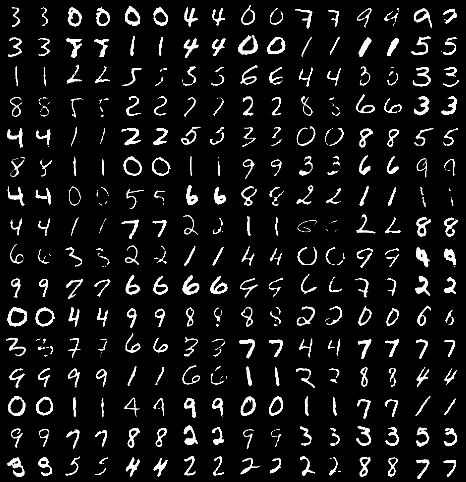 3 3 0 0 0 0 4 4 0 0 7 7 9 9 9 9
3 3 8 8 1 1 4 4 0 0 1 1 1 1 5 5
1 1 2 2 5 5 5 5 6 6 4 4 3 3 3 3
8 8 5 5 2 2 7 7 2 2 8 8 6 6 3 3
4 4 1 1 2 2 5 5 3 3 0 0 8 8 5 5
8 8 1 1 0 0 1 1 9 9 3 3 6 6 9 9
4 4 0 0 5 5 6 6 8 8 2 2 1 1 1 1
4 4 1 1 7 7 2 2 1 1 6 6 2 2 8 8
6 6 3 3 2 2 1 1 4 4 0 0 9 9 9 9
9 9 7 7 6 6 6 6 9 9 6 6 7 7 2 2
0 0 4 4 9 9 8 8 8 8 2 2 0 0 6 6
3 3 7 7 6 6 3 3 7 7 4 4 7 7 7 7
9 9 9 9 1 1 6 6 1 1 2 2 8 8 4 4
0 0 1 1 4 4 9 9 0 0 1 1 7 7 1 1
9 9 7 7 8 8 2 2 9 9 3 3 3 3 5 3
3 3 5 5 4 4 2 2 2 2 2 2 8 8 7 7